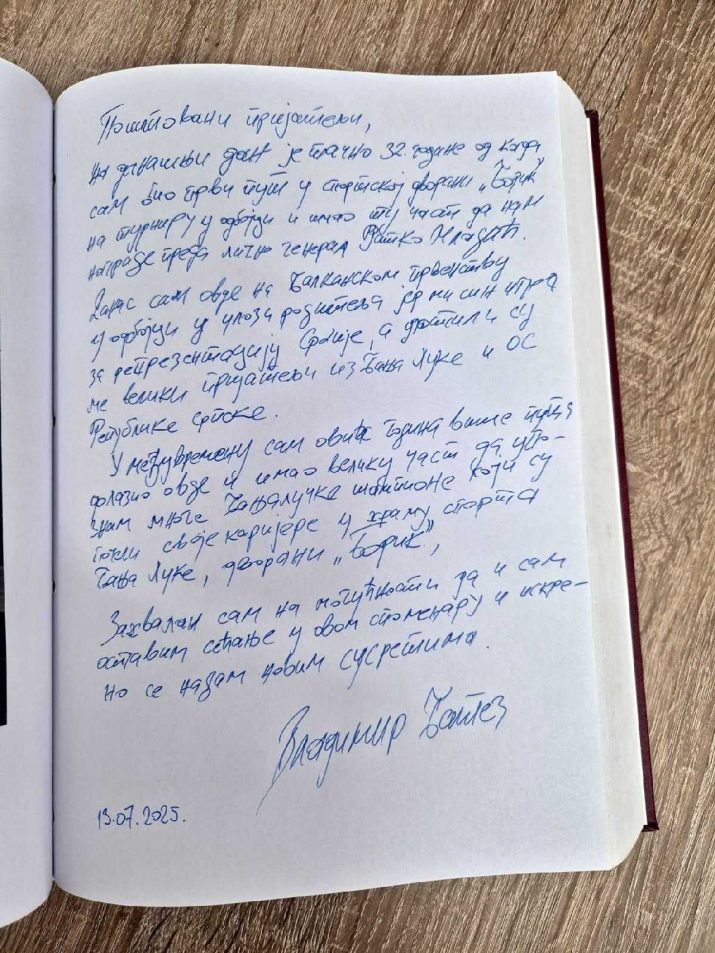 Поштовани пријатељи,
на данашњи дан је тачно 32 године од када
сам био први пут у спортској дворани „Борик"
на турниру у одбојци и имао ту част да нам
награде преда лично генерал Ратко Младић.
Данас сам овде на Балканском првенству
у одбојци у улози родитеља јер ми син игра
за репрезентацију Србије, а угостили су
ме велики пријатељи из Бања Луке и ОС
Републике Српске.
У међувремену сам ових година више пута
долазио овде и имао велику част да упо-
знам многе бањалучке шампионе који су
почели своје каријере у храму спорта
Бања Луке, дворани „Борик",
Захвалан сам на могућности да и сам
оставим сећање у овом споменару и искре-
но се надам новим сусретима.
Владимир Батез
13.07.2025.